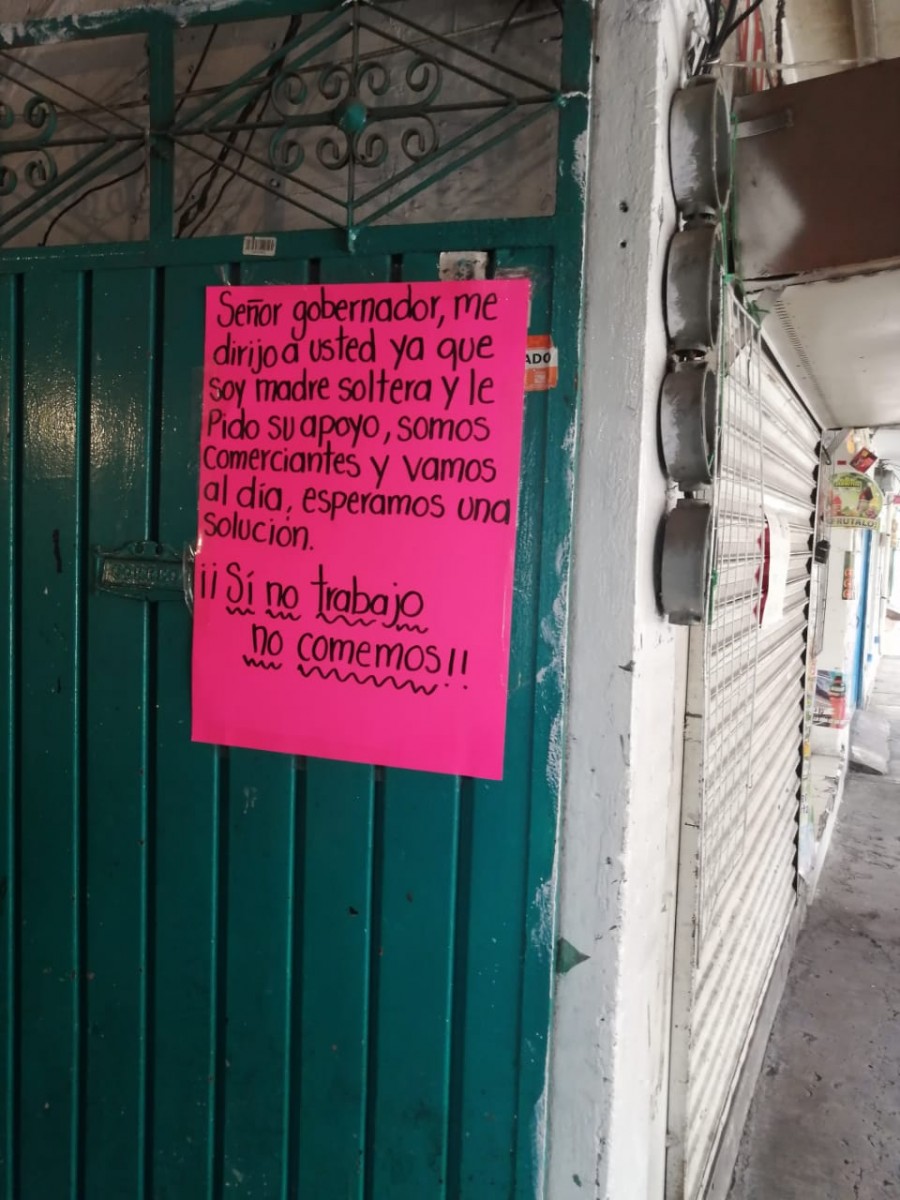 Señor gobernador, me
dirijo a usted ya que
soy madre soltera y le
Pido su apoyo, somos
comerciantes y vamos
al día, esperamos una
solución.
¡¡Sí no trabajo
no comemos!!
ADO
CORREO
FRUTALO